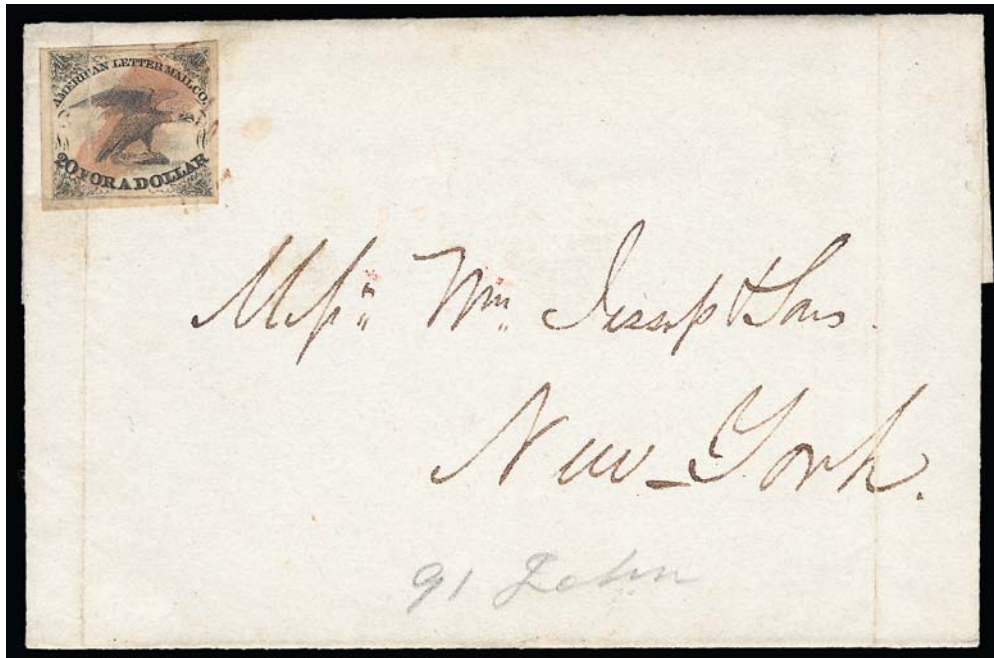 AMERICAN LETTER MAIL CO.
20 FOR A DOLLAR
Messrs Wm Jessup & Sons.
New-York.
91 John